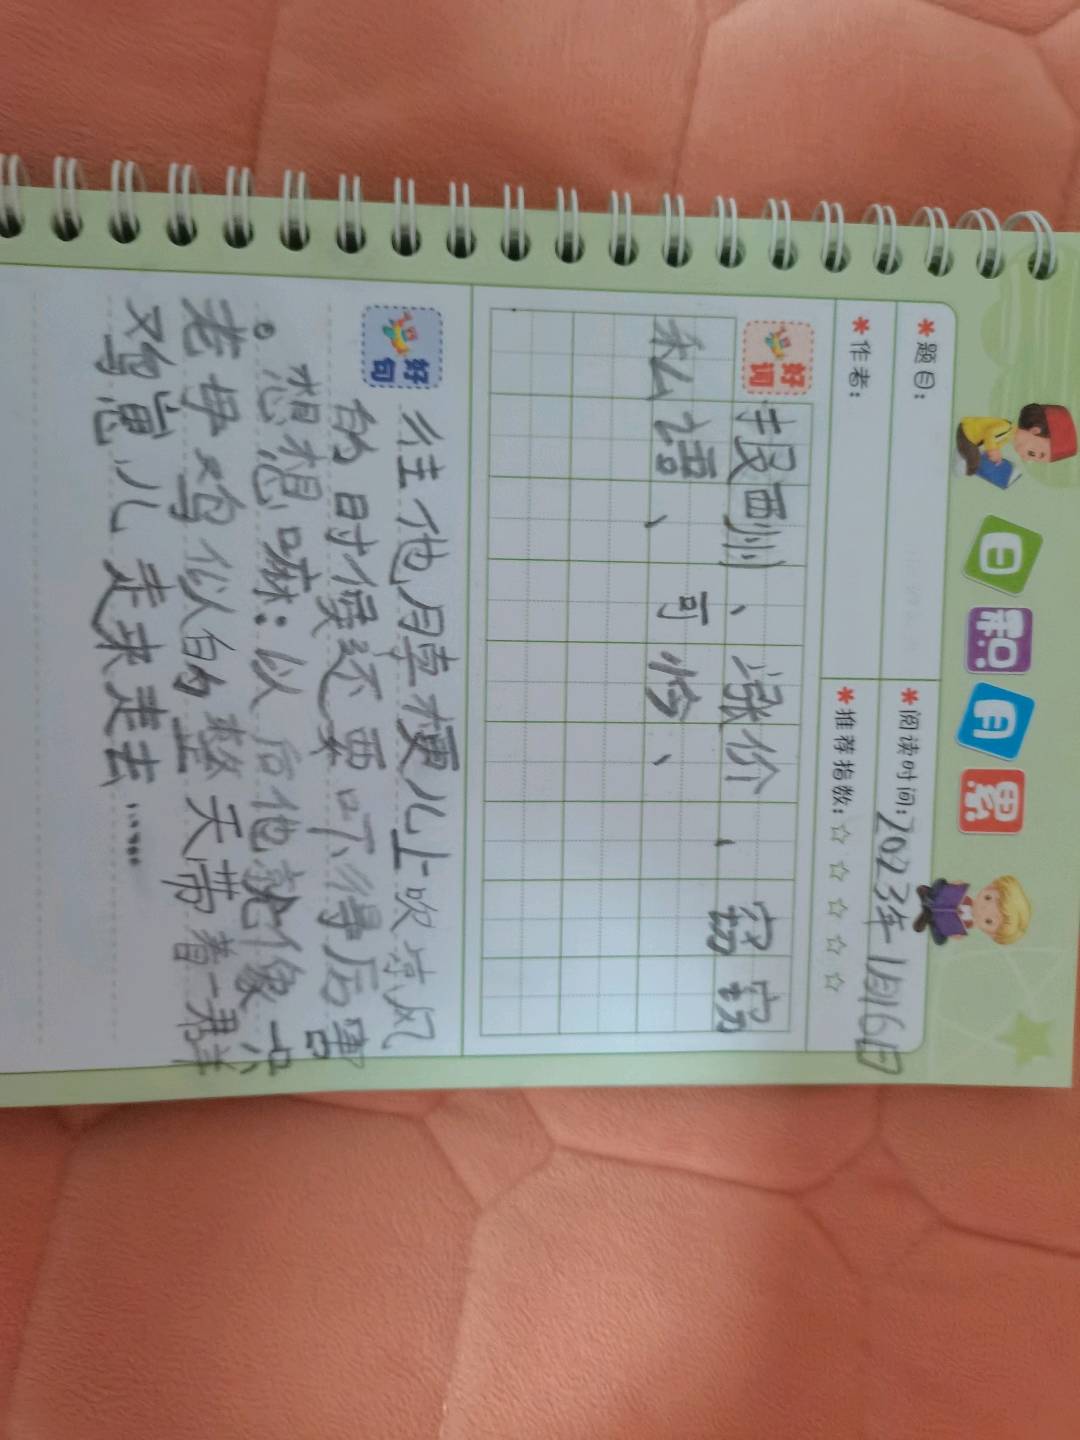 日积月累
*题目:
*阅读时间:2023年1月16日
*作者:
*推荐指数:☆☆☆☆☆
好词
报酬、涨价、窃窃
私语、可怜、
好句
往他脖梗儿上吹凉风
的时候还要吓得后害
。想想嘛:以后他就像一只
老母鸡似的整天带着一群
鸡崽儿走来走去……